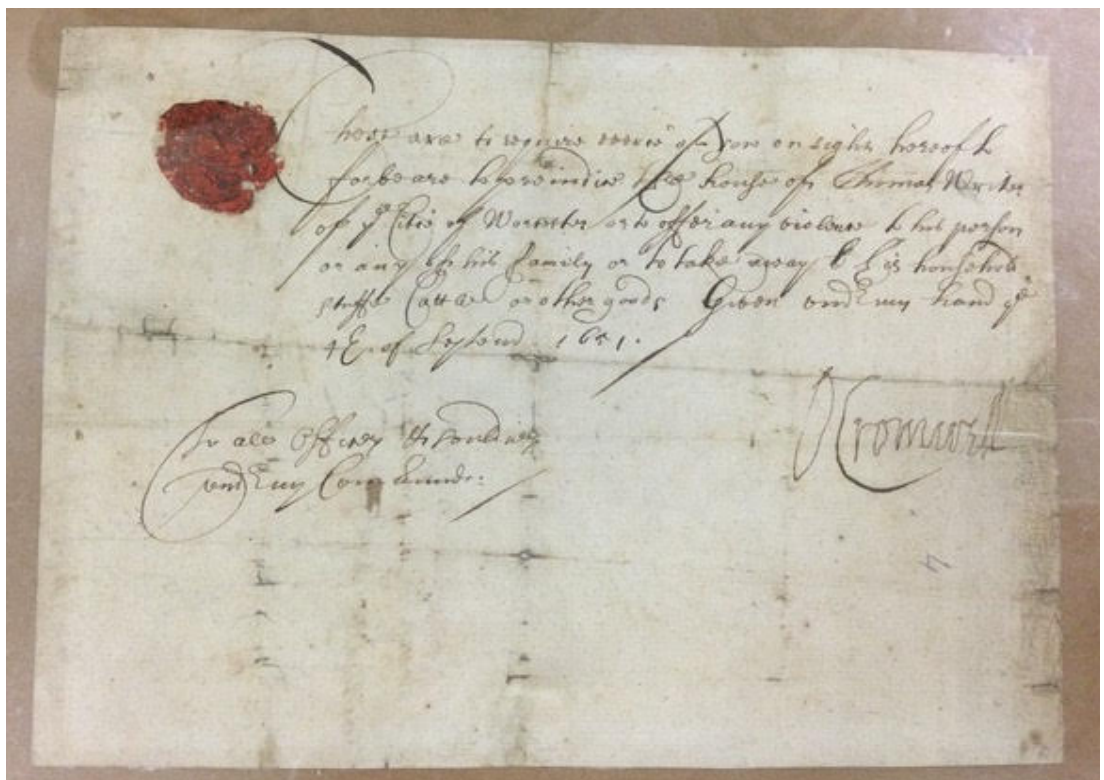 These are to require everie of you on sight hereof to
forbeare to preiudice the house of Thomas Writer
of ye Citie of Worcester or to offer any violence to his person
or any of his family or to take away of his household
stuffe Cattle or other goods Given under my hand ye
4th of Septemb 1651.
O Cromwell
To all Officers & souldiers
under my Comaunde: